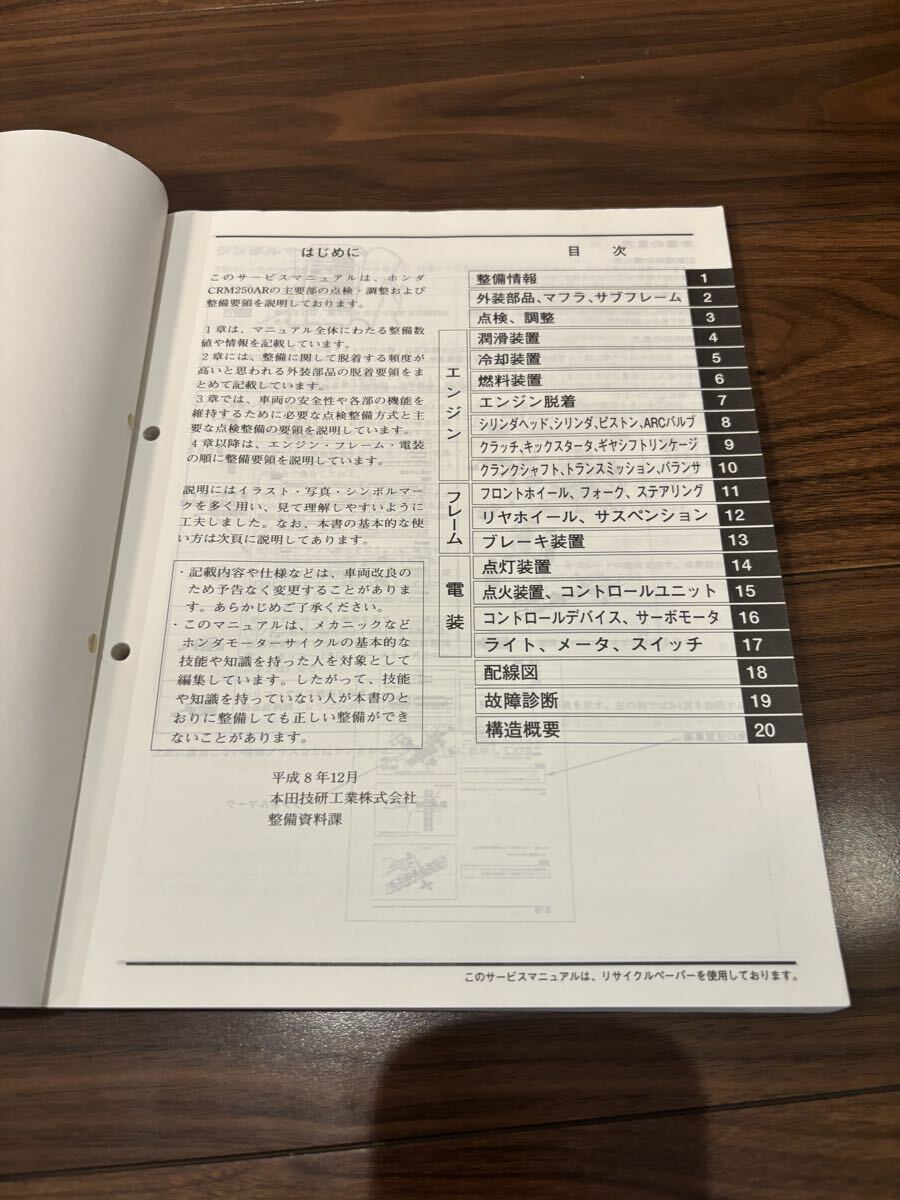 はじめに
このサービスマニュアルは、ホンダ
CRM250ARの主要部の点検・調整および
整備要領を説明しております。
1章は、マニュアル全体にわたる整備数
値や情報を記載しています。
2章には、整備に関して脱着する頻度が
高いと思われる外装部品の脱着要領をま
とめて記載しています。
3章では、車両の安全性や各部の機能を
維持するために必要な点検整備方式と主
要な点検整備の要領を説明しています。
4章以降は、エンジン・フレーム・電装
の順に整備要領を説明しています。
説明にはイラスト・写真・シンボルマー
クを多く用い、見て理解しやすいように
工夫しました。なお、本書の基本的な使
い方は次頁に説明してあります。
・記載内容や仕様などは、車両改良の
ため予告なく変更することがありま
す。あらかじめご了承ください。
・このマニュアルは、メカニックなど
ホンダモーターサイクルの基本的な
技能や知識を持った人を対象として
編集しています。したがって、技能
や知識を持っていない人が本書のと
おりに整備しても正しい整備ができ
ないことがあります。
平成8年12月
本田技研工業株式会社
整備資料課
目 次
整備情報 1
外装部品、マフラ、サブフレーム 2
点検、調整 3
エンジン
潤滑装置 4
冷却装置 5
燃料装置 6
エンジン脱着 7
シリンダヘッド、シリンダ、ピストン、ARCバルブ 8
クラッチ、キックスタータ、ギヤシフトリンケージ 9
クランクシャフト、トランスミッション、バランサ 10
フレーム
フロントホイール、フォーク、ステアリング 11
リヤホイール、サスペンション 12
ブレーキ装置 13
電装
点灯装置 14
点火装置、コントロールユニット 15
コントロールデバイス、サーボモータ 16
ライト、メータ、スイッチ 17
配線図 18
故障診断 19
構造概要 20
このサービスマニュアルは、リサイクルペーパーを使用しております。